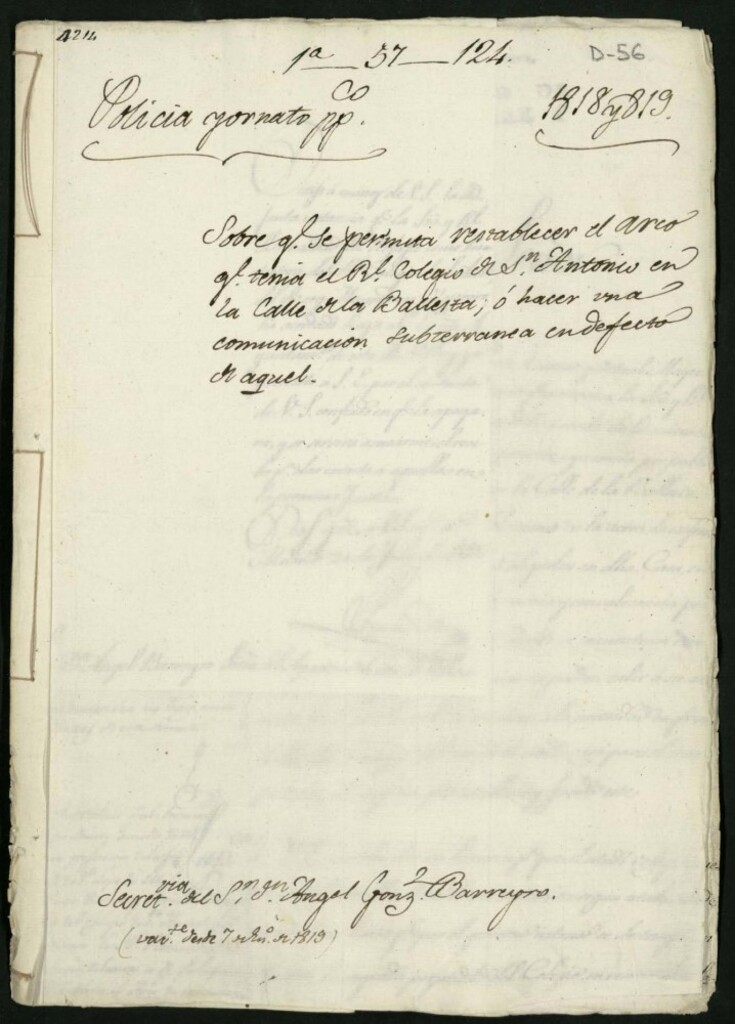 4214
1ª — 57 — 124.
D-56
Policia y ornato pp.co
1818 y 819.
Sobre q.e se permita restablecer el arco
q.e tenia el R.l Colegio de S.n Antonio en
la Calle de la Ballesta; ó hacer una
comunicacion subterranea en defecto
de aquel.
Secret.via del S.n d.n Angel Gonz.z Barreyro.
(vac.te desde 7 de de 1819)